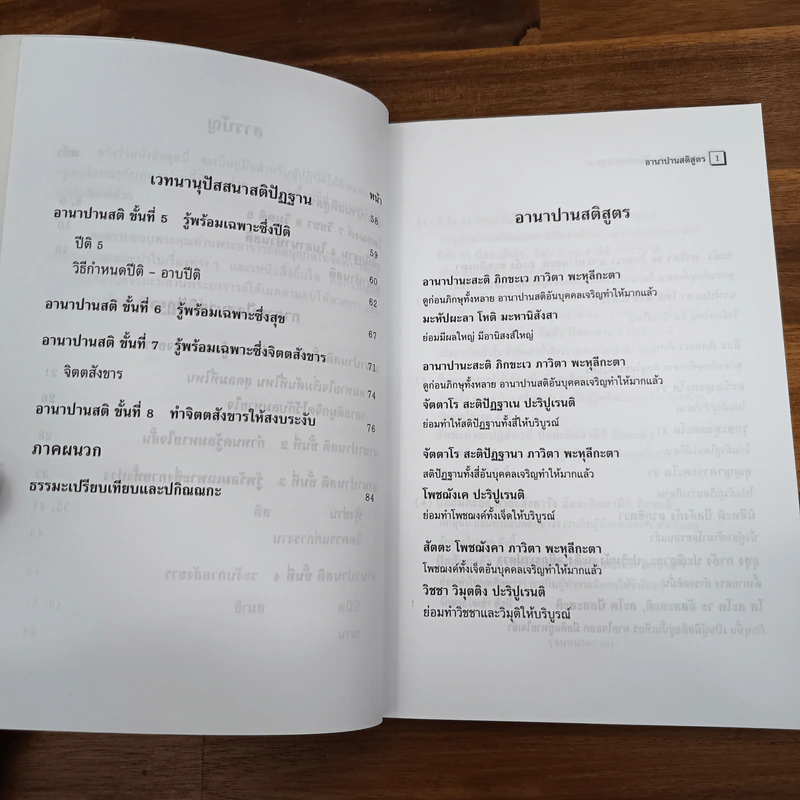 หน้า
เวทนานุปัสสนาสติปัฏฐาน 58
อานาปานสติ ขั้นที่ 5 รู้พร้อมเฉพาะซึ่งปีติ 59
ปีติ 5 60
วิธีกำหนดปีติ – อาบปีติ 62
อานาปานสติ ขั้นที่ 6 รู้พร้อมเฉพาะซึ่งสุข 67
อานาปานสติ ขั้นที่ 7 รู้พร้อมเฉพาะซึ่งจิตตสังขาร 71
จิตตสังขาร 74
อานาปานสติ ขั้นที่ 8 ทำจิตตสังขารให้สงบระงับ 76
ภาคผนวก
ธรรมะเปรียบเทียบและปกิณณกะ 84
อานาปานสติสูตร 1
อานาปานสติสูตร
อานาปานะสะติ ภิกขะเว ภาวิตา พะหุลีกะตา
ดูก่อนภิกษุทั้งหลาย อานาปานสติอันบุคคลเจริญทำให้มากแล้ว
มะหัปผะลา โหติ มะหานิสังสา
ย่อมมีผลใหญ่ มีอานิสงส์ใหญ่
อานาปานะสะติ ภิกขะเว ภาวิตา พะหุลีกะตา
ดูก่อนภิกษุทั้งหลาย อานาปานสติอันบุคคลเจริญทำให้มากแล้ว
จัตตาโร สะติปัฏฐาเน ปะริปูเรนติ
ย่อมทำให้สติปัฏฐานทั้งสี่ให้บริบูรณ์
จัตตาโร สะติปัฏฐานา ภาวิตา พะหุลีกะตา
สติปัฏฐานทั้งสี่อันบุคคลเจริญทำให้มากแล้ว
โพชฌังเค ปะริปูเรนติ
ย่อมทำโพชฌงค์ทั้งเจ็ดให้บริบูรณ์
สัตตะ โพชฌังคา ภาวิตา พะหุลีกะตา
โพชฌงค์ทั้งเจ็ดอันบุคคลเจริญทำให้มากแล้ว
วิชชา วิมุตติง ปะริปูเรนติ
ย่อมทำวิชชาและวิมุติให้บริบูรณ์